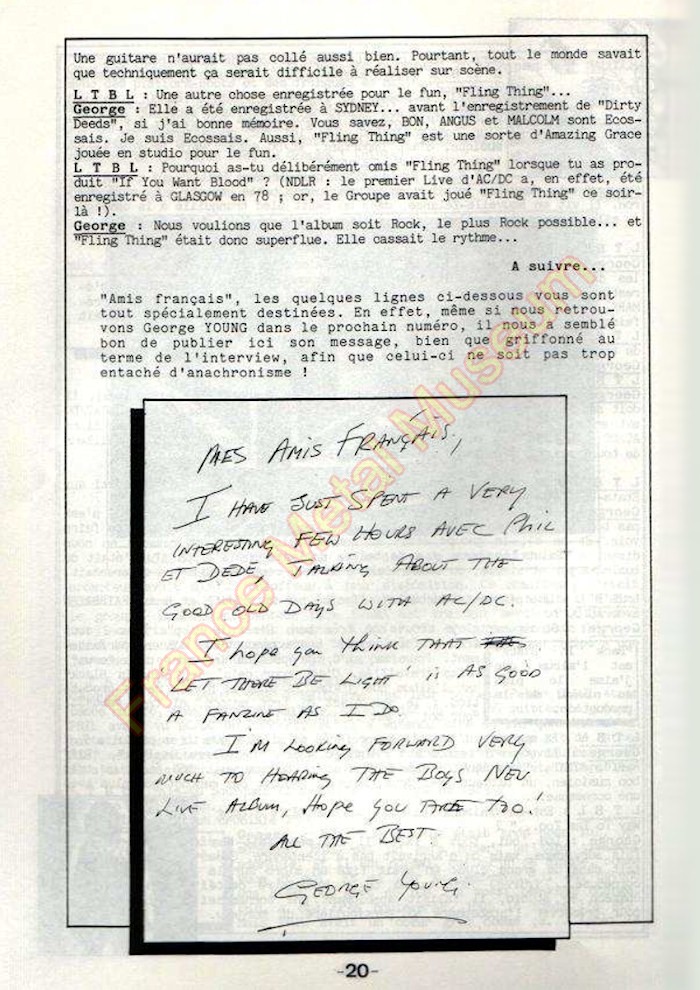 Une guitare n'aurait pas collé aussi bien. Pourtant, tout le monde savait
que techniquement ça serait difficile à réaliser sur scène.
L T B L : Une autre chose enregistrée pour le fun, "Fling Thing"...
George : Elle a été enregistrée à SYDNEY... avant l'enregistrement de "Dirty
Deeds", si j'ai bonne mémoire. Vous savez, BON, ANGUS et MALCOLM sont Ecos-
sais. Je suis Ecossais. Aussi, "Fling Thing" est une sorte d'Amazing Grace
jouée en studio pour le fun.
L T B L : Pourquoi as-tu délibérément omis "Fling Thing" lorsque tu as pro-
duit "If You Want Blood" ? (NDLR : le premier Live d'AC/DC a, en effet, été
enregistré à GLASGOW en 78 ; or, le Groupe avait joué "Fling Thing" ce soir-
là !).
George : Nous voulions que l'album soit Rock, le plus Rock possible... et
"Fling Thing" était donc superflue. Elle cassait le rythme...
A suivre...
"Amis français", les quelques lignes ci-dessous vous sont
tout spécialement destinées. En effet, même si nous retrou-
vons George YOUNG dans le prochain numéro, il nous a semblé
bon de publier ici son message, bien que griffonné au
terme de l'interview, afin que celui-ci ne soit pas trop
entaché d'anachronisme !
MES AMIS FRANÇAIS,
I HAVE JUST SPENT A VERY
INTERESTING FEW HOURS AVEC PHIL
ET DEDE, TALKING ABOUT THE
GOOD OLD DAYS WITH AC/DC.
I hope you think THAT
'LET THERE BE LIGHT' IS AS GOOD
A FANZINE AS I DO.
I'M LOOKING FORWARD VERY
MUCH TO HEARING THE BOYS NEW
LIVE ALBUM, HOPE YOU ARE TOO!
ALL THE BEST.
GEORGE YOUNG.
-20-
France Metal Museum